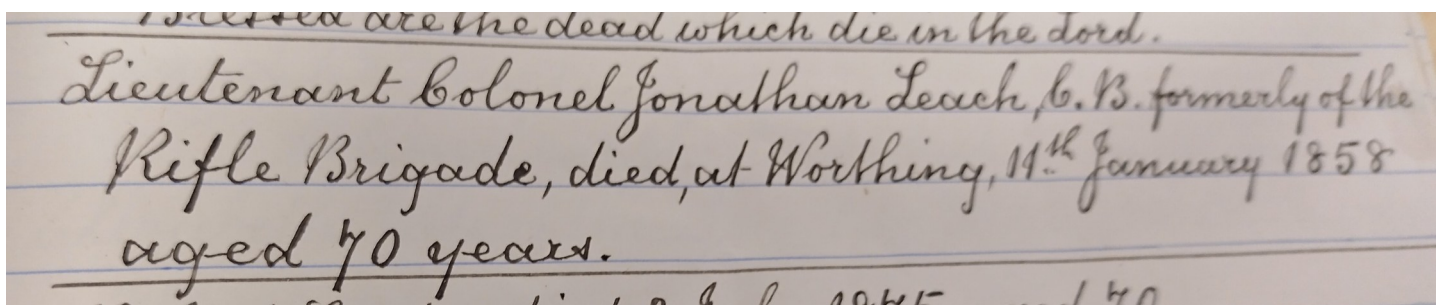 Blessed are the dead which die in the Lord.
Lieutenant Colonel Jonathan Leach, C.B. formerly of the
Rifle Brigade, died, at Worthing, 11th January 1858
aged 70 years.